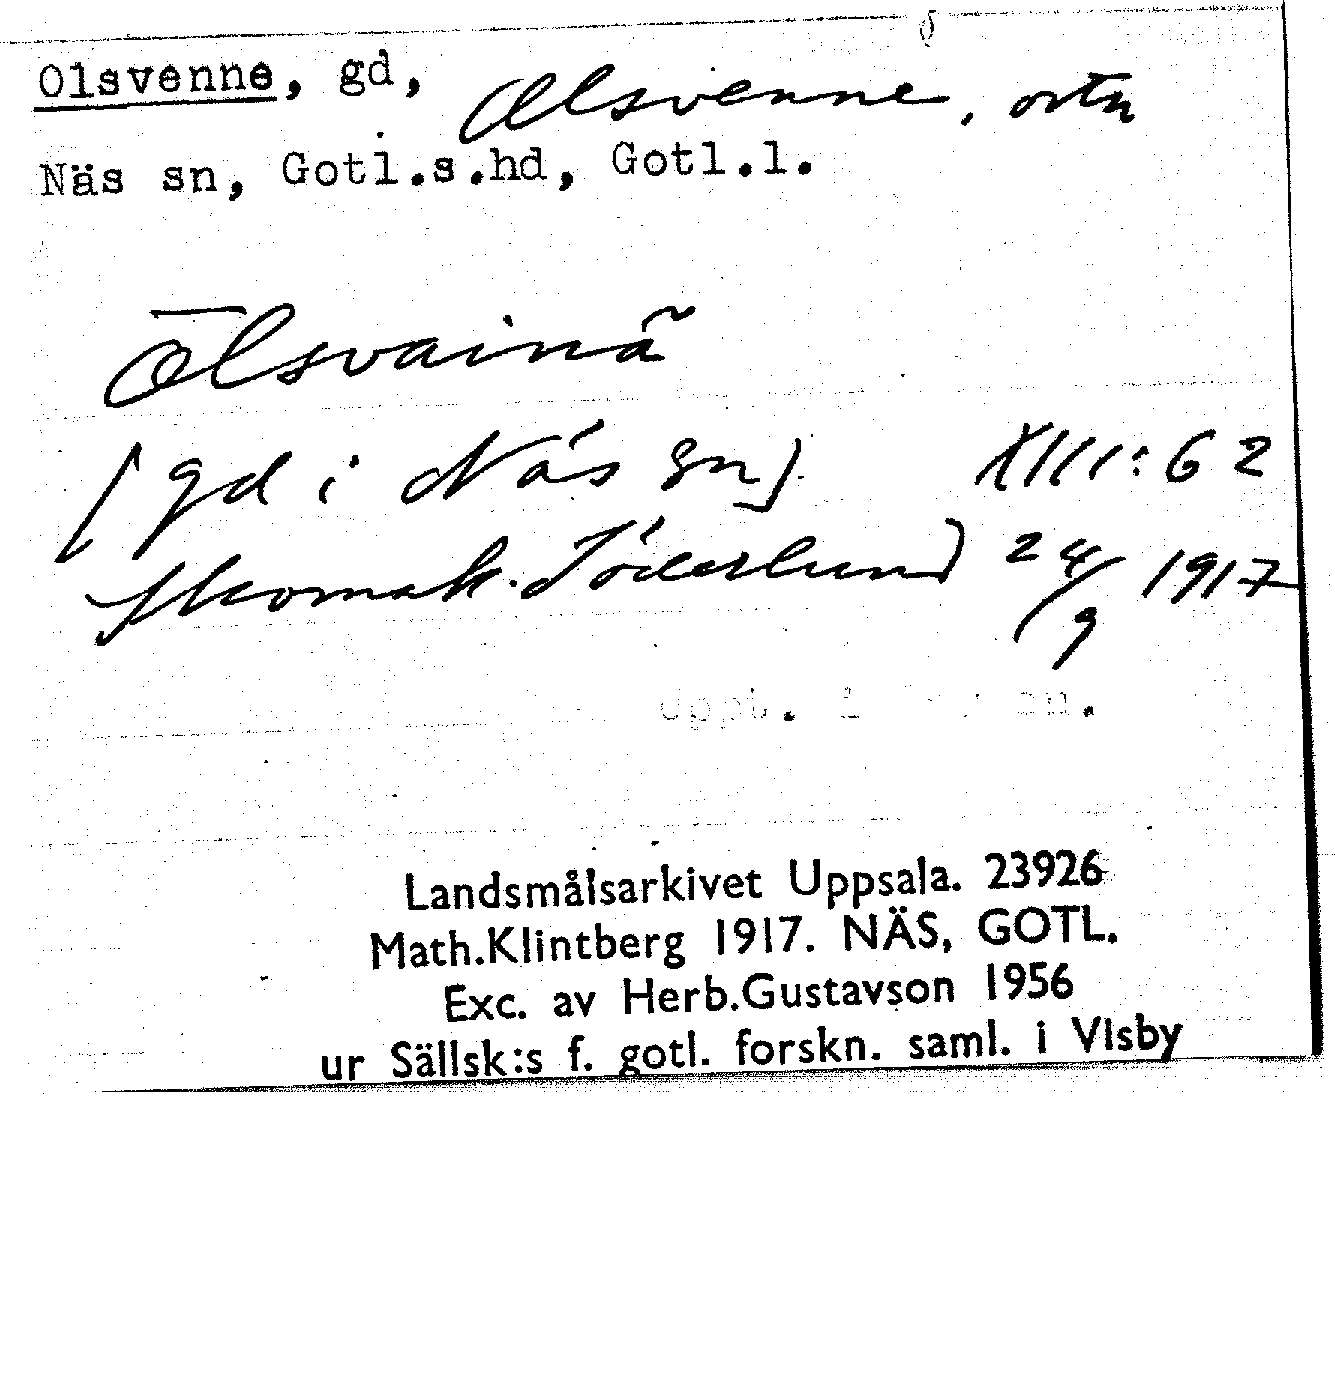 Olsvenne, gd, Olsvenne, ortn
Näs sn, Gotl.s.hd, Gotl.l.
Olsvainä
[gd i Näs sn]. XIII:62
skomak. Söderlund] 24/9 1917
Uppt. i
Landsmålsarkivet Uppsala. 23926
Math.Klintberg 1917. NÄS, GOTL.
Exc. av Herb.Gustavson 1956
ur Sällsk:s f. gotl. forskn. saml. i Visby